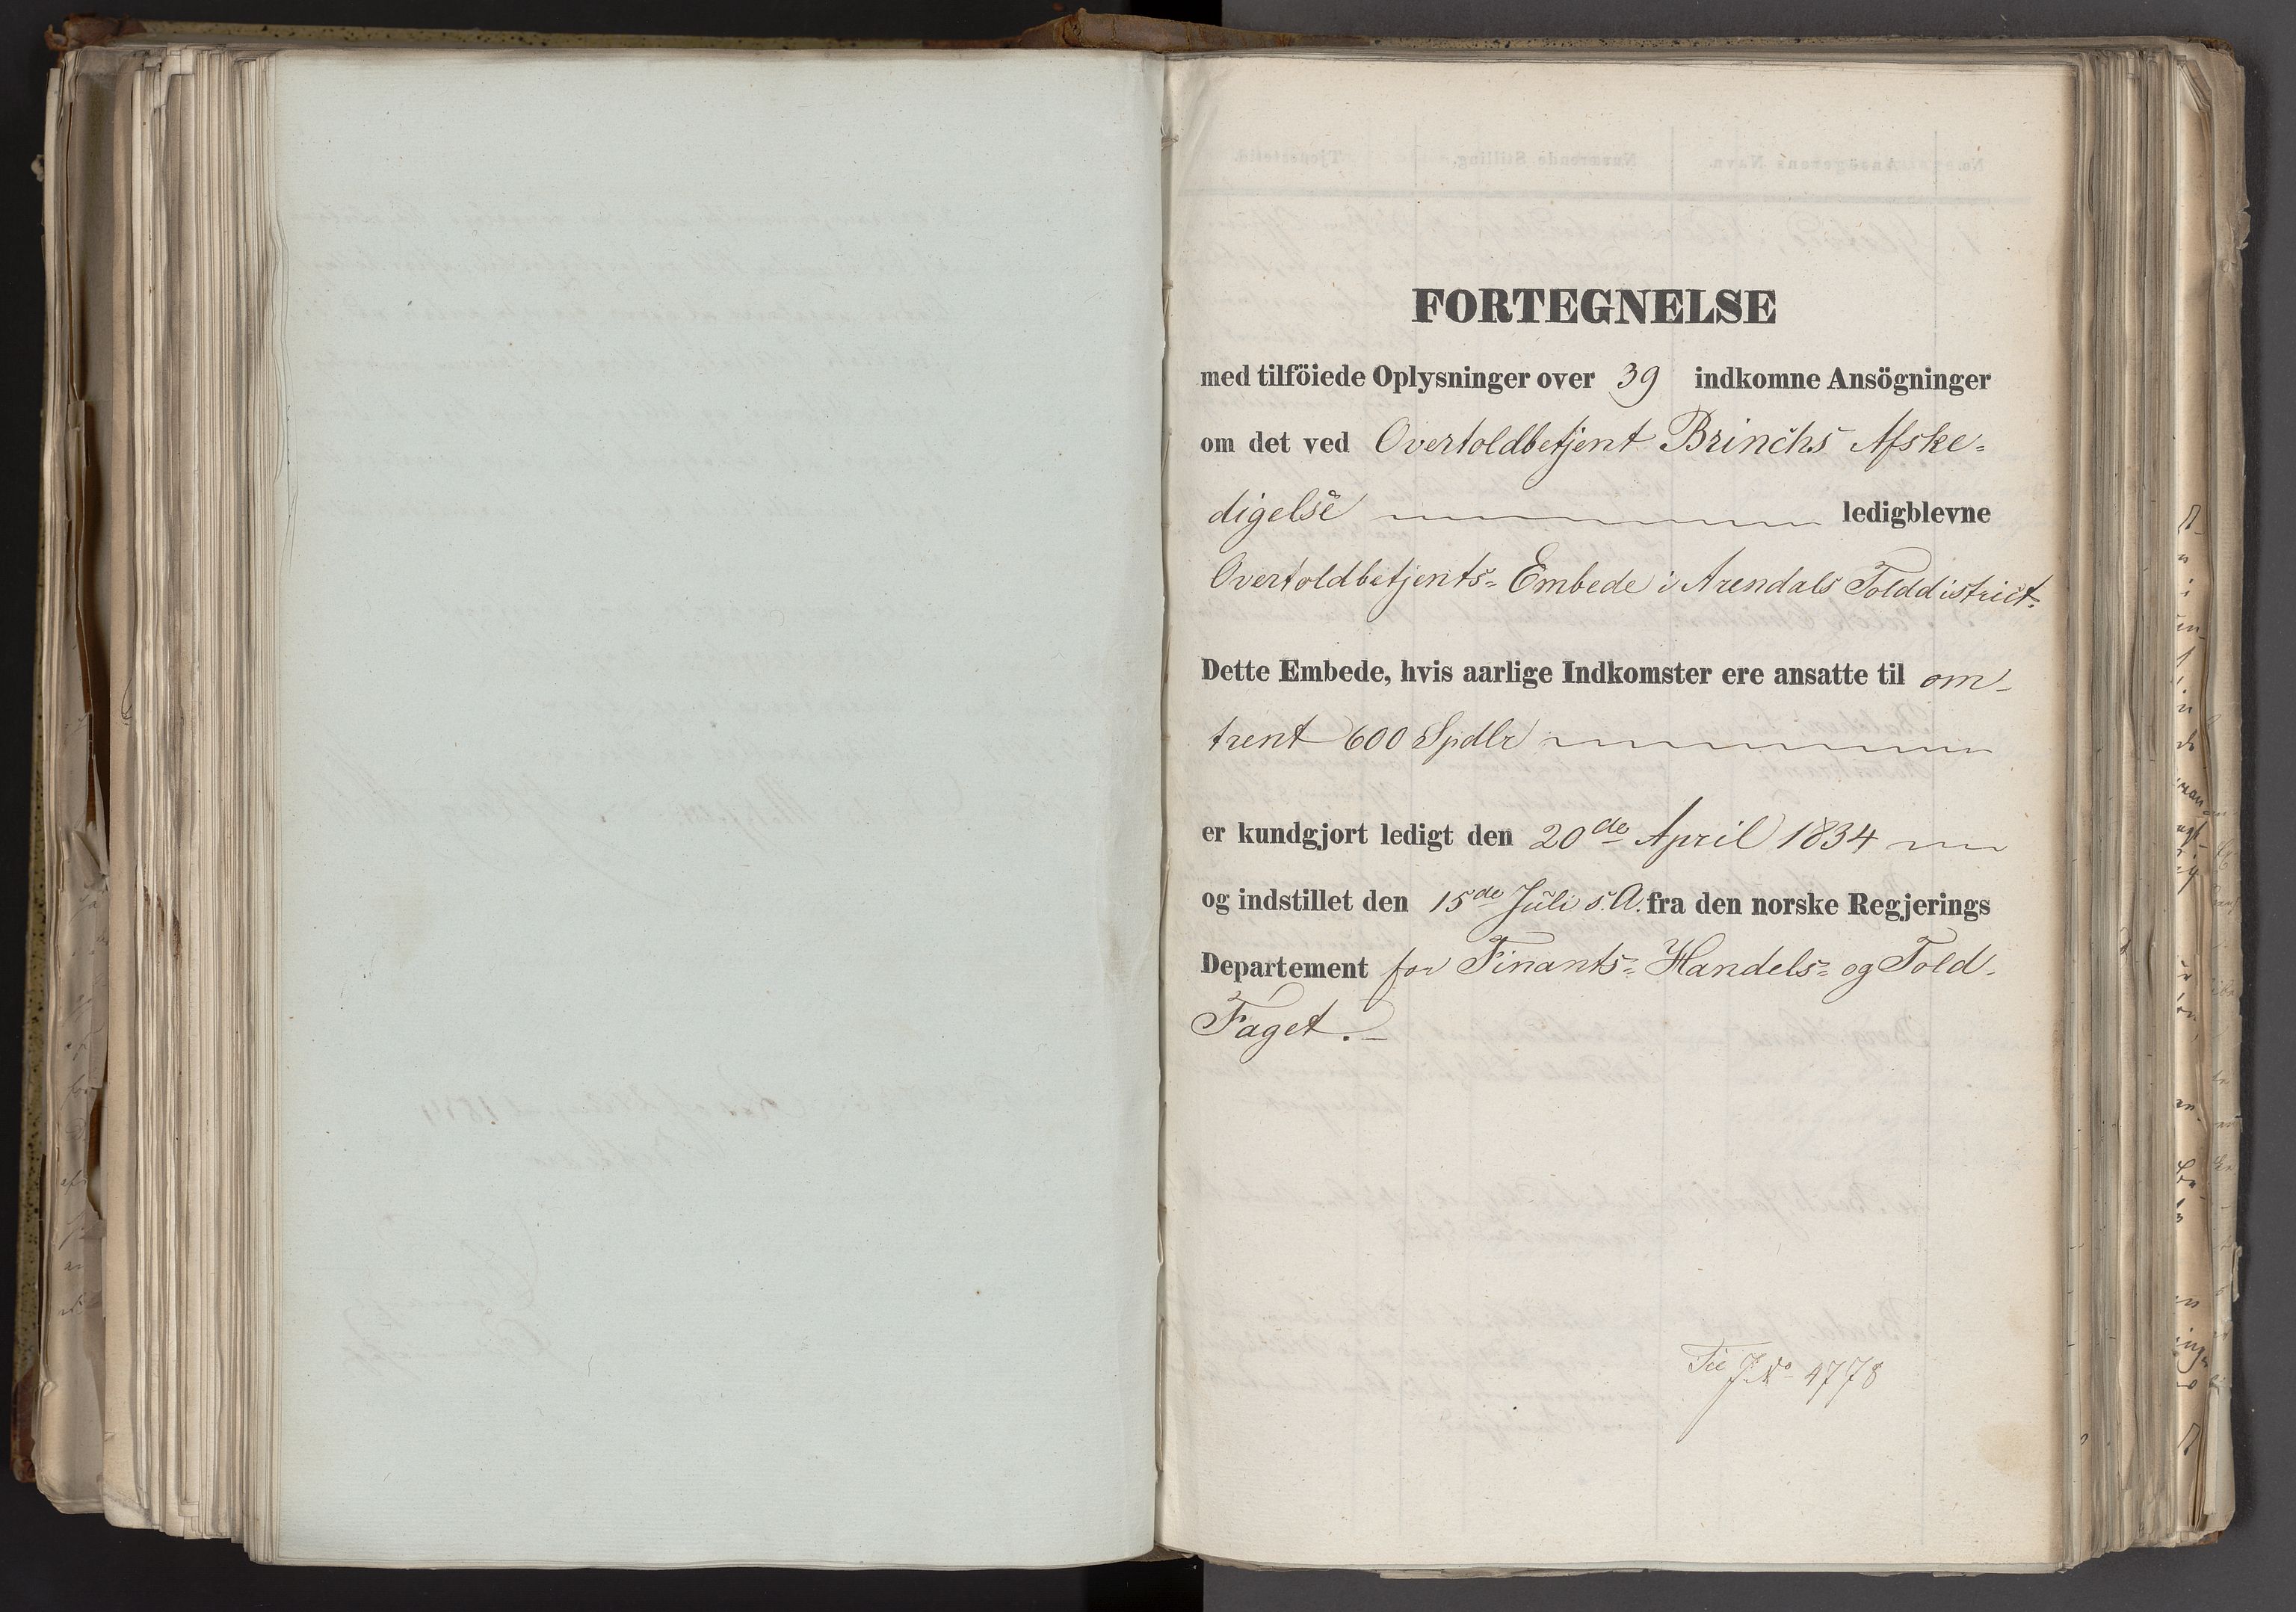 FORTEGNELSE
med tilföiede Oplysninger over 39 indkomne Ansögninger
om det ved Overtoldbetjent Brinchs Afske-
digelse ledigblevne
Overtoldbetjents- Embede i Arendals Tolddistrict.
Dette Embede, hvis aarlige Indkomster ere ansatte til om-
trent 600 Spdlr
er kundgjort ledigt den 20de April 1834
og indstillet den 15de Juli s. A. fra den norske Regjerings
Departement for Finants- Handels- og Told-
Faget.
Til J. No 4778